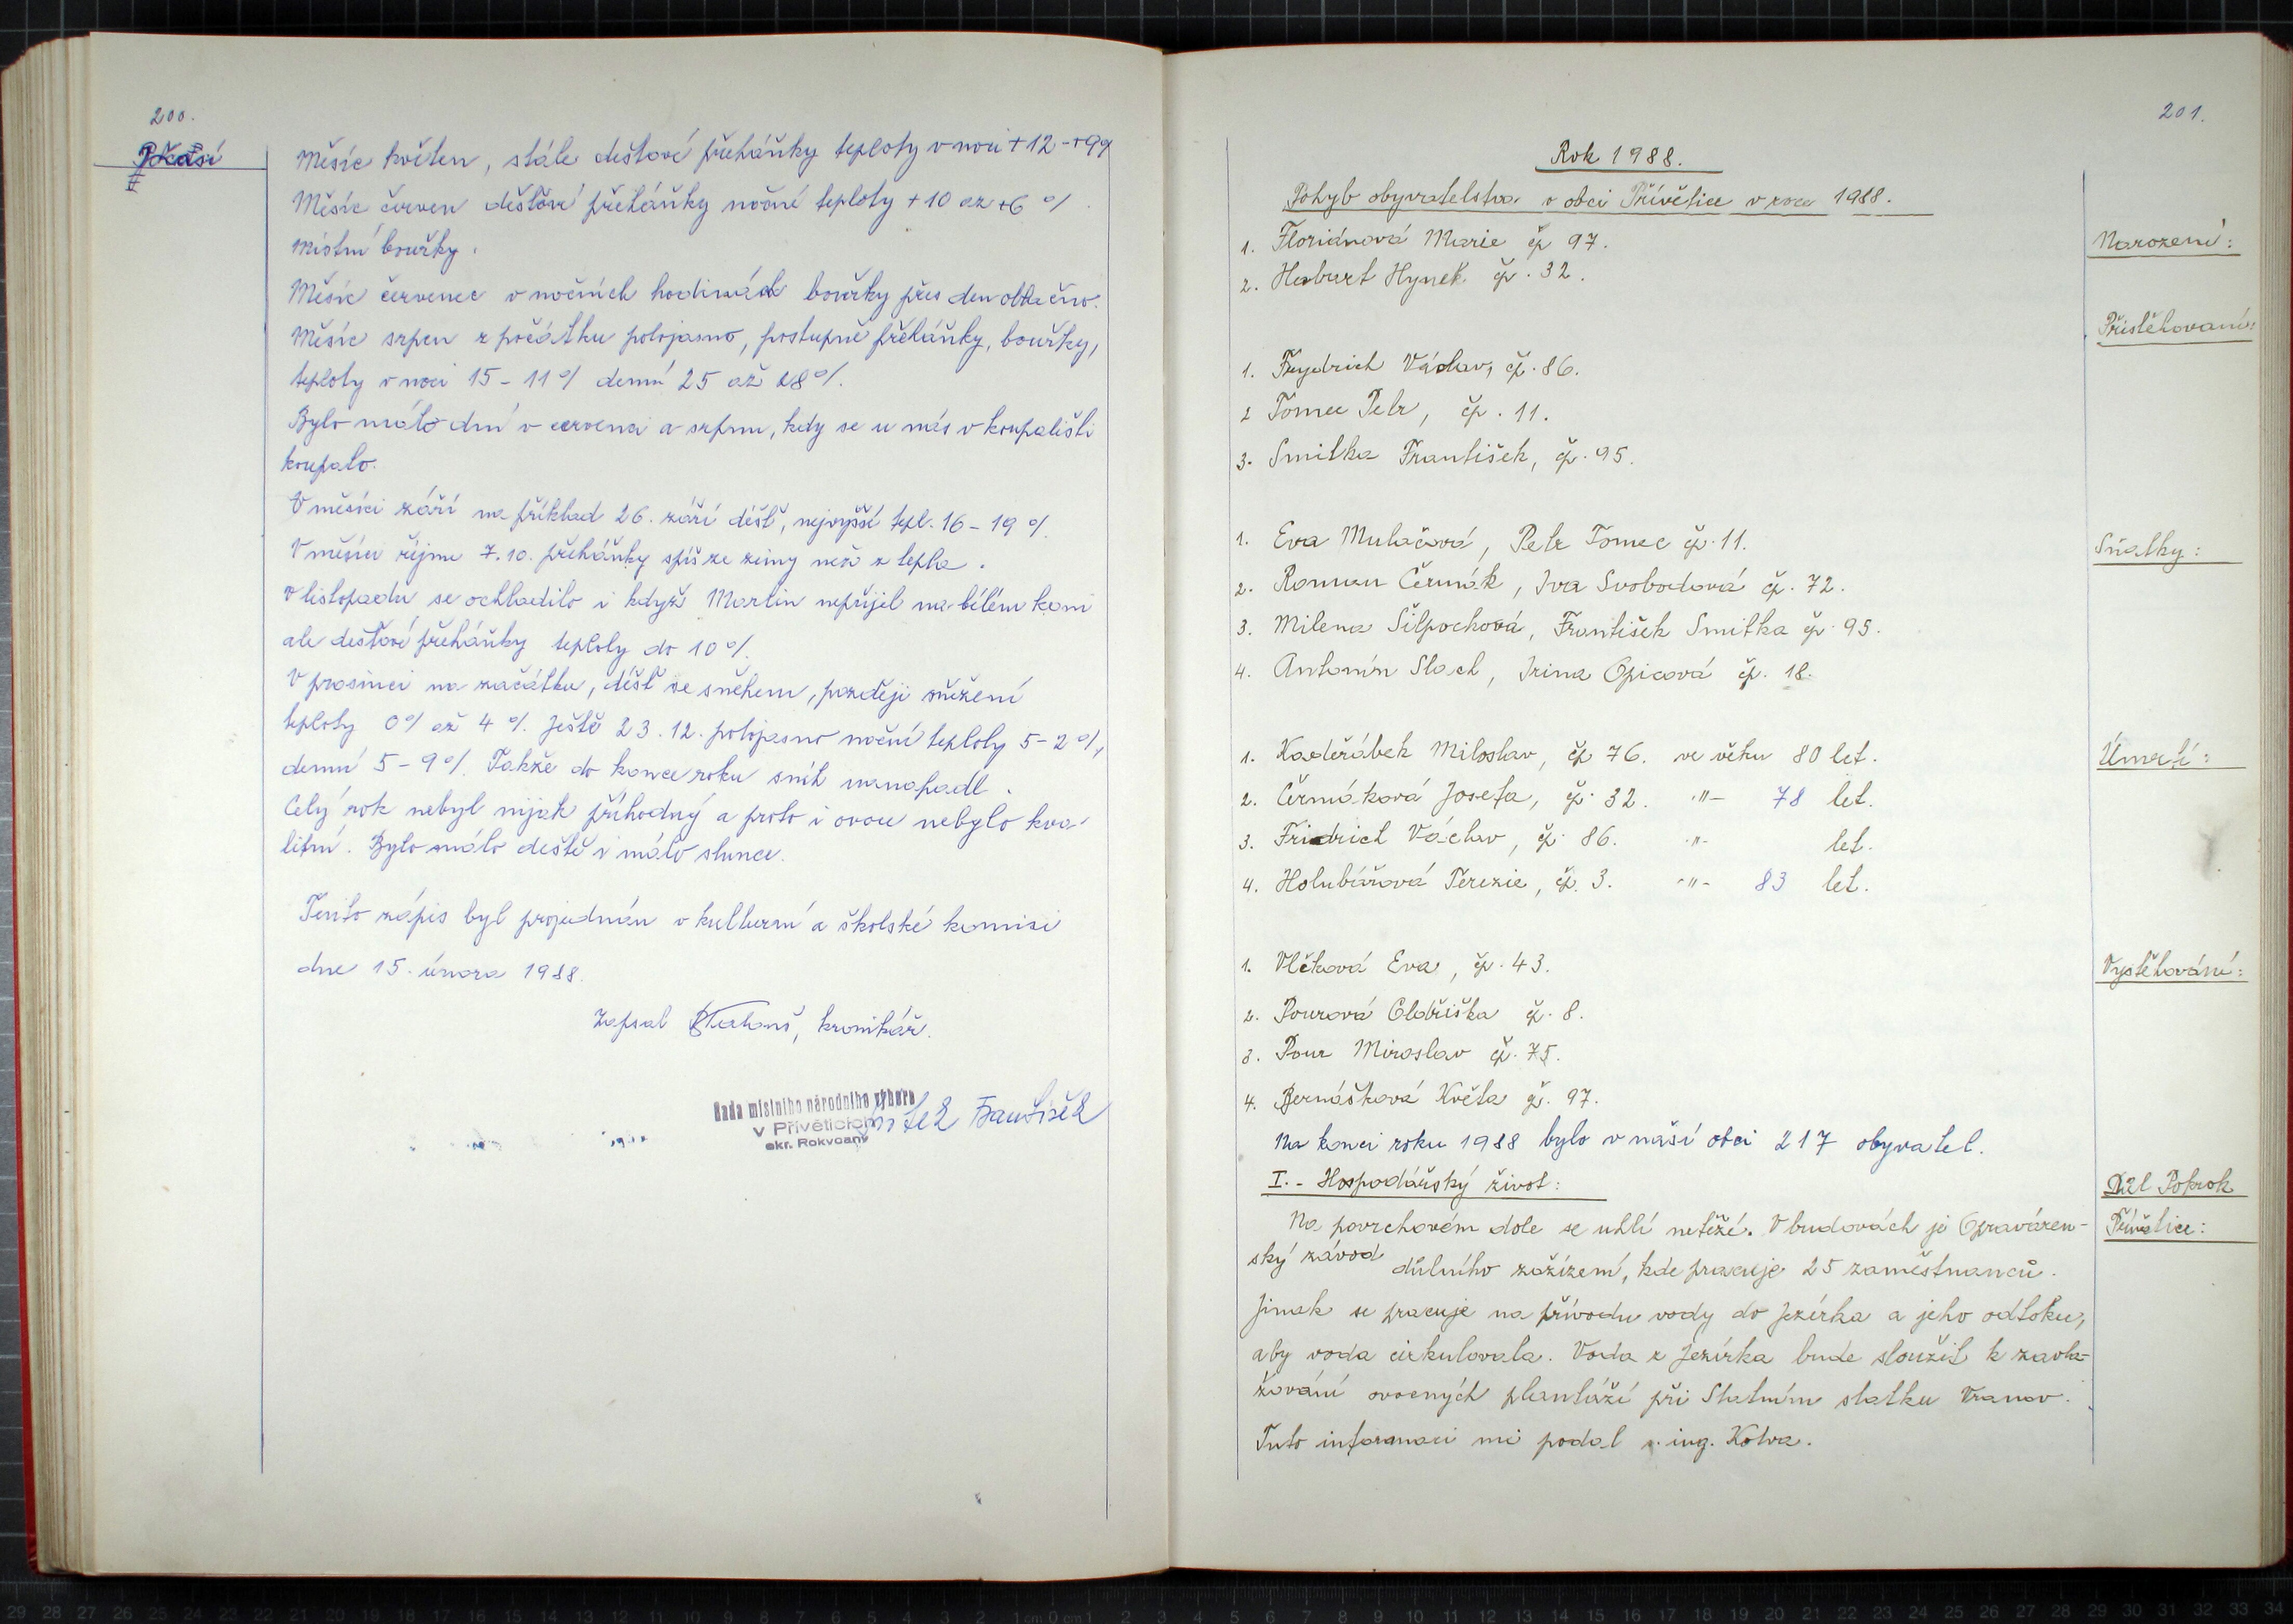 200.
Počasí
Měsíc květen, stále dešťové přeháňky teploty v noci +12 - +9%
Měsíc červen dešťové přeháňky noční teploty +10 až +6 %
místní bouřky.
Měsíc červenec v nočních hodinách bouřky přes den oblačno.
Měsíc srpen z počátku polojasno, postupně přeháňky, bouřky,
teploty v noci 15 - 11 % denní 25 až 28 %.
Bylo málo dní v červenci a srpnu, kdy se u nás v koupališti
koupalo.
V měsíci září na příklad 26. září déšť, nejvyšší tepl. 16 - 19 %.
V měsíci říjnu 7.10. přeháňky spíš ze zimy než z tepla.
V listopadu se ochladilo i když Martin nepřijel na bílém koni
ale dešťové přeháňky teploty do 10 %.
V prosinci na začátku, déšť se sněhem, později sněžení
teploty 0 % až 4 %. Ještě 23.12. polojasno noční teploty 5 - 2 %,
denní 5 - 9 %. Takže do konce roku sníh nenapadl.
Celý rok nebyl nijak příhodný a proto i ovoce nebylo kva-
litní. Bylo málo deště i málo slunce.
Tento zápis byl projednán v kulturní a školské komisi
dne 15. února 1988.
Zapsal , kronikář.
Rada místního národního výboru
v Přívěticích
okr. Rokycany
František
201.
Rok 1988.
Pohyb obyvatelstva v obci Přívětice v roce 1988.
Narození:
1. Floriánová Marie čp 97.
2. Habart Hynek čp. 32.
Přistěhovaní:
1. Frydrich Václav, čp. 86.
2 Tomec Petr, čp. 11.
3. Smitka František, čp. 95.
Sňatky:
1. Eva Mulačová, Petr Tomec čp. 11.
2. Roman Čermák, Iva Svobodová čp. 72.
3. Milena Šilpochová, František Smitka čp. 95.
4. Antonín Slach, Irina Opicová čp. 18.
Úmrtí:
1. Kadeřábek Miloslav, čp 76. ve věku 80 let.
2. Čermáková Josefa, čp. 32. -"- 78 let.
3. Fridrich Václav, čp. 86. -"- let.
4. Holubářová Terezie, čp. 3. -"- 83 let.
Vystěhování:
1. Vlčková Eva, čp. 43.
2. Pourová Oldřiška čp. 8.
3. Pour Miroslav čp. 75.
4. Bernášková Květa čp. 97.
Na konci roku 1988 bylo v naší obci 217 obyvatel.
I. - Hospodářský život:
Důl Pokrok
Přívětice:
Na povrchovém dole se uhlí netěží. V budovách je Opraváren-
ský závod důlního zařízení, kde pracuje 25 zaměstnanců.
Jinak se pracuje na přívodu vody do Jezírka a jeho odtoku,
aby voda cirkulovala. Voda z Jezírka bude sloužit k zavla-
žování ovocných plantáží při Statním statku Vranov.
Tuto informaci mi podal s. ing. Kotva.